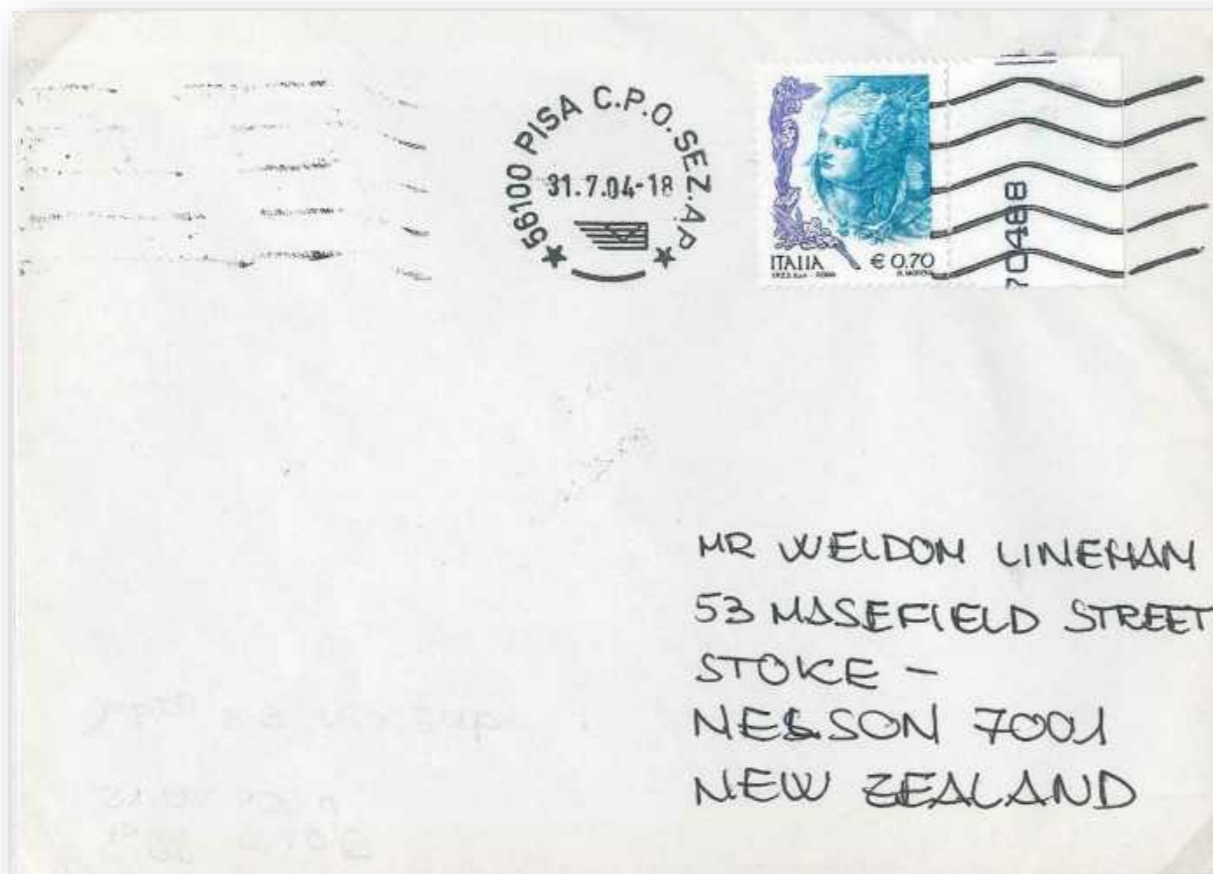 56100 PISA C.P.O. SEZ. A P
31.7.04-18
ITALIA € 0.70
70488
MR WELDOM LINEHAM
53 MASEFIELD STREET
STOKE -
NELSON 7001
NEW ZEALAND